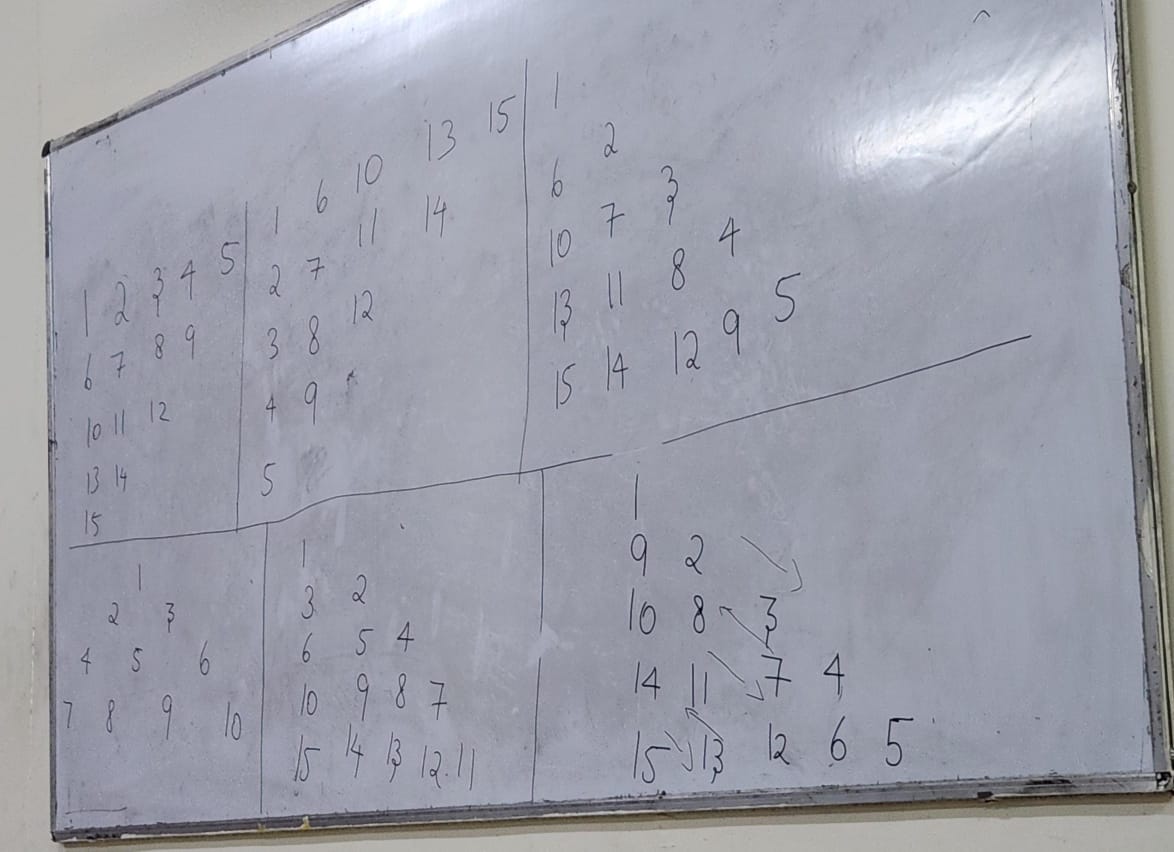 1 2 3 4 5
6 7 8 9
10 11 12
13 14
15
1 6 10 13 15
2 7 11 14
3 8 12
4 9
5
1
6 2
10 7 3
13 11 8 4
15 14 12 9 5
1
2 3
4 5 6
7 8 9 10
1
3 2
6 5 4
10 9 8 7
15 14 13 12 11
1
9 2
10 8 3
14 11 7 4
15 13 12 6 5